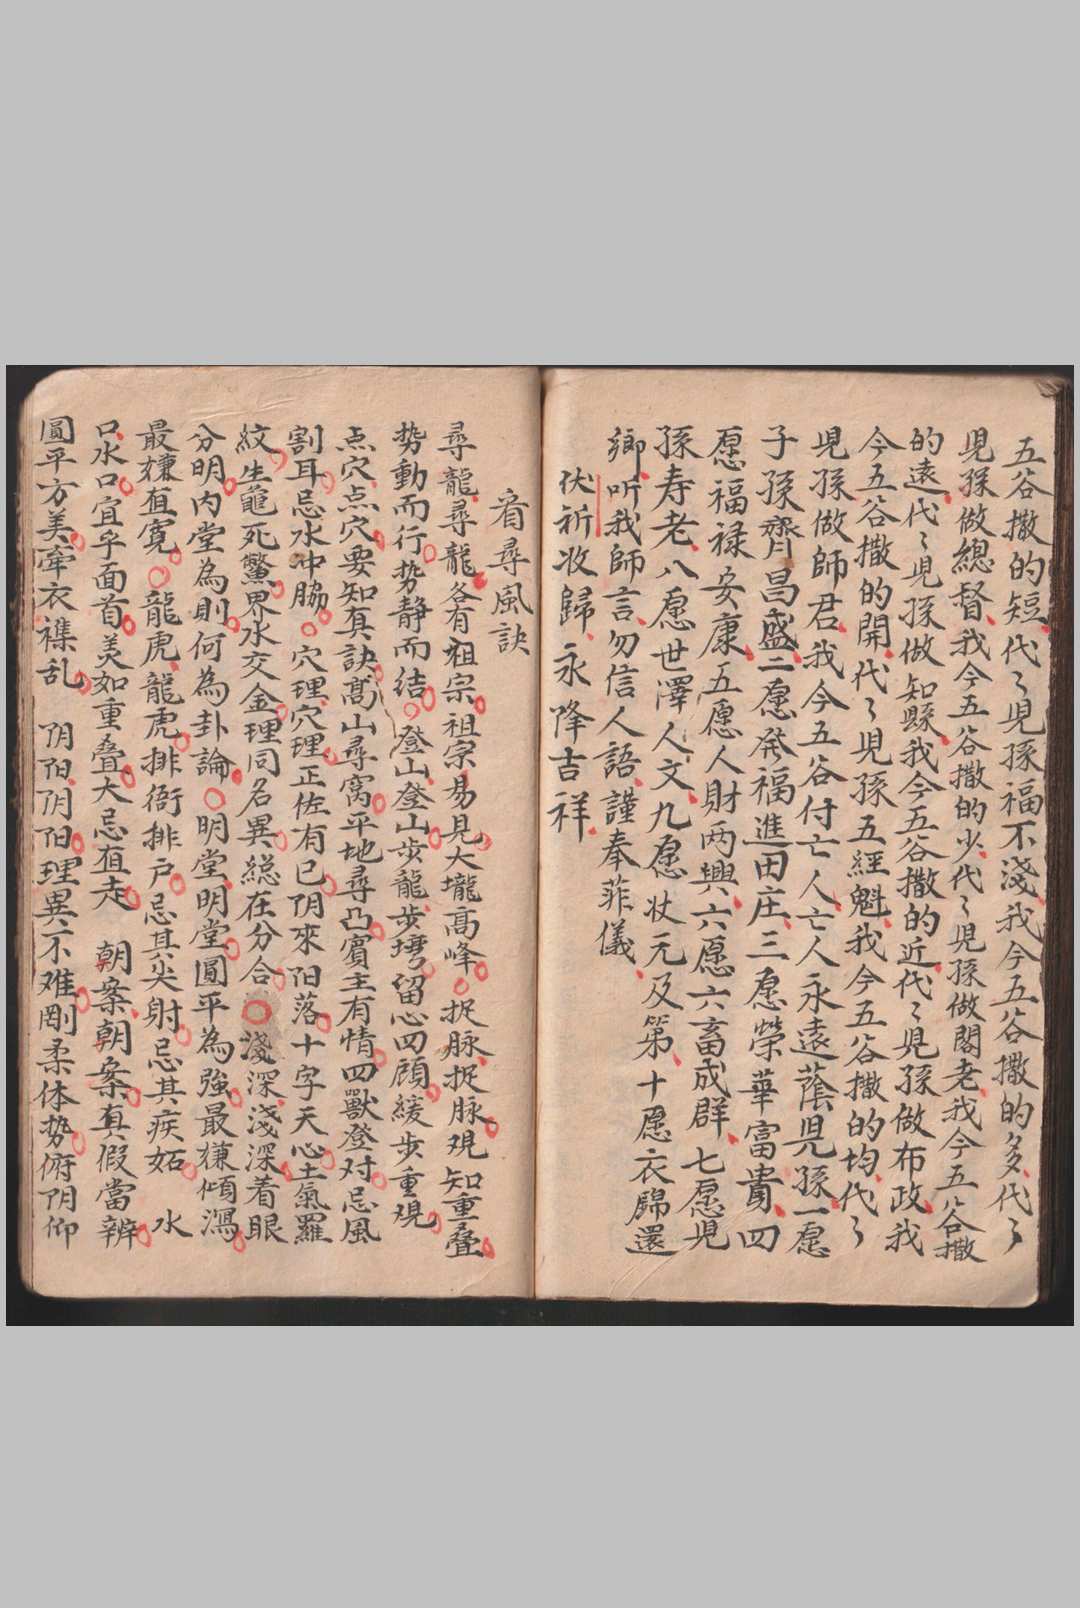 五谷撒的短代〻児孫福不淺我今五谷撒的多代〻
児孫做總督我今五谷撒的少代〻児孫做閣老我今五谷撒
的遠代〻児孫做知縣我今五谷撒的近代〻児孫做布政我
今五谷撒的開代〻児孫五經魁我今五谷撒的均代〻
児孫做師君我今五谷付亡人亡人永遠蔭児孫一愿
子孫齊昌盛二愿発福進田庄三愿榮華富貴四
愿福禄安康五愿人財两興六愿六畜成群七愿児
孫寿老八愿世澤人文九愿状元及第十愿衣歸還
鄉听我師言勿信人語謹奉菲儀
伏祈收歸永降吉祥
看尋風訣
尋龍尋龍各有祖宗祖宗易見大壠高峰捉脉捉脉观知重叠
势動而行势静而结登山登山步龍步塆留心四顧緩步重观
点穴点穴要知真訣髙山尋窝平地尋凸賓主有情四獸登对忌風
割耳忌水冲脇穴理穴理正佐有已阴來阳落十字天心土氣羅
紋生龍死鱉界水交金理同名異総在分合淺深淺深着眼
分明内堂為則何為卦論明堂明堂圓平為強最嫌傾瀉
最嫌直寛龍虎龍虎排衙排户忌其尖射忌其疾妬 水
口水口宜乎面首美如重叠大忌直走 朝案朝案真假當辨
圓平方美牽衣襍乱 阴阳阴阳理異不难剛柔体势俯阴仰